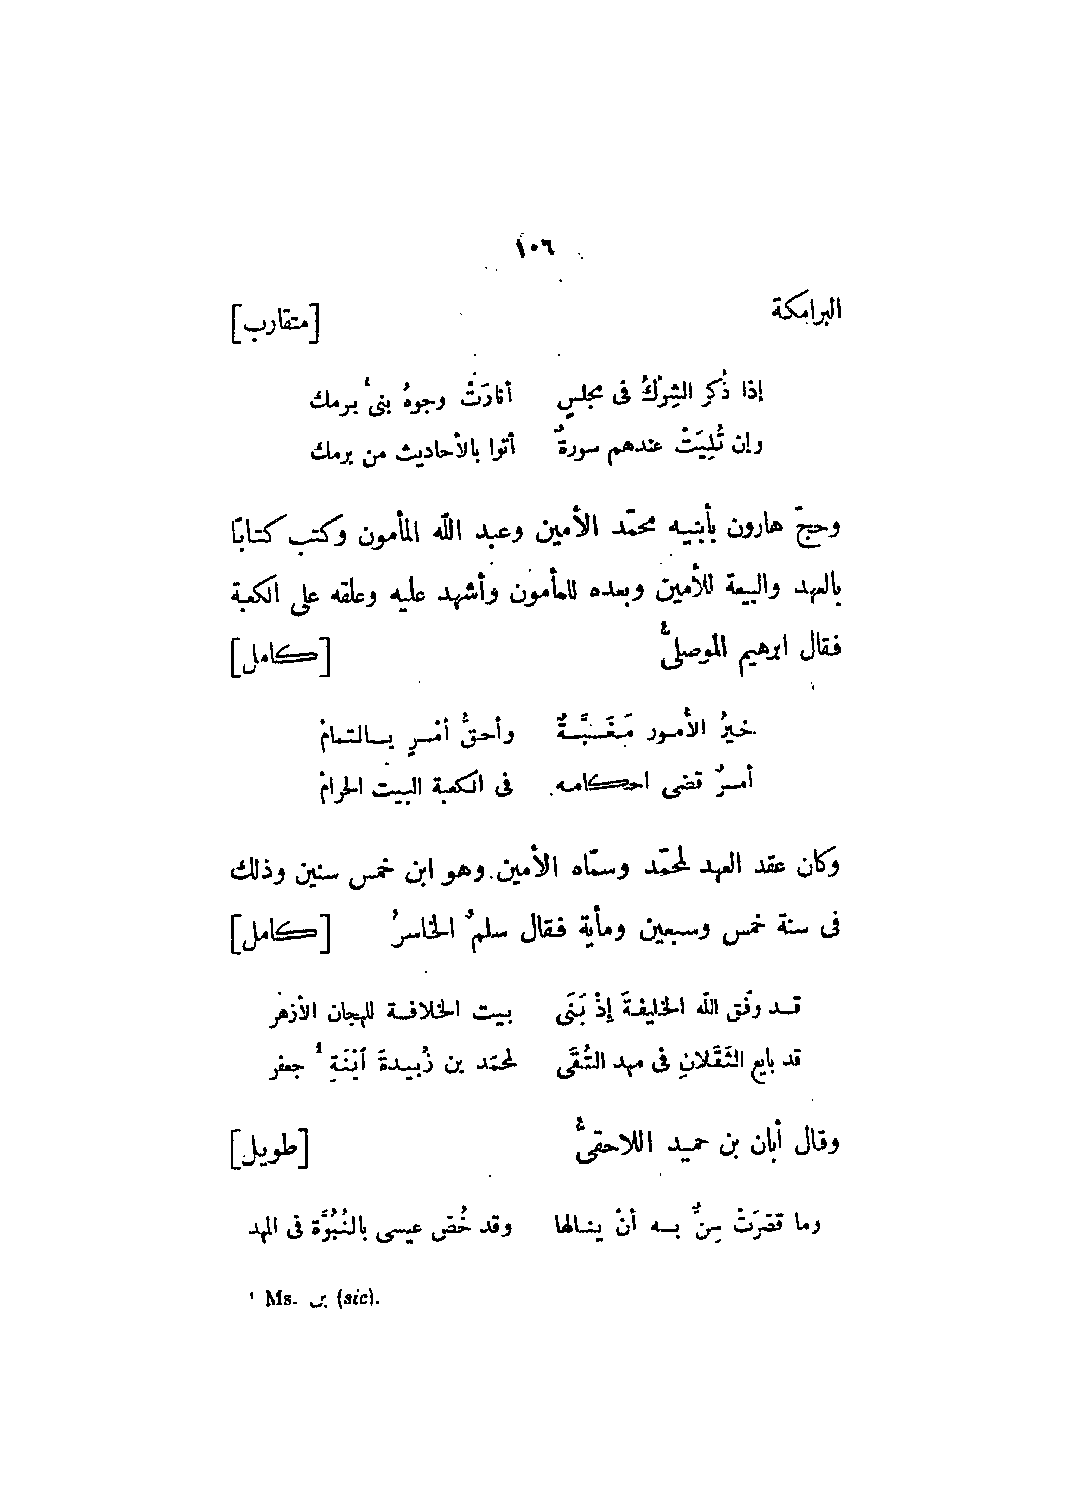 ١٠٦
البرامكة [متقارب]
إذا ذُكر الشِركُ فى مجلسٍ أنارَتْ وجوهُ بنى برمك
وإن تُلِيَتْ عندهم سورةٌ أتوا بالأحاديث من يرمك
وحجّ هارون بأبنيه محمّد الأمين وعبد اللّه المأمون وكتب كتابًا
بالعهد والبيعة للأمين وبعده للمأمون وأشهد عليه وعلقه على الكعبة
فقال ابرهيم الموصلىُّ [كامل]
خيرُ الأمور مَغَبَّةٌ وأحقُّ أمْرٍ بالتمامْ
أمرٌ قضى احكامه فى الكعبة البيت الحرامْ
وكان عقد العهد لمحمّد وسمّاه الأمين وهو ابن خمس سنين وذلك
فى سنة خمس وسبعين ومأية فقال سلمٌ الخاسرُ [كامل]
قد وفّق اللّه الخليفةَ إذْ بَنَى بيت الخلافة للهجان الأزهر
قد بايع الثَقَلانِ فى مهد التُقَى لمحمّد بن زُبيدةَ ٱبْنَةِ ¹ جعفر
وقال أبان بن حميد اللاحقىُّ [طويل]
وما قصّرَتْ سِنٌّ به أنْ ينالها وقد خُصّ عيسى بالنُبُوَّة فى المهد
¹ Ms. بن (sic).